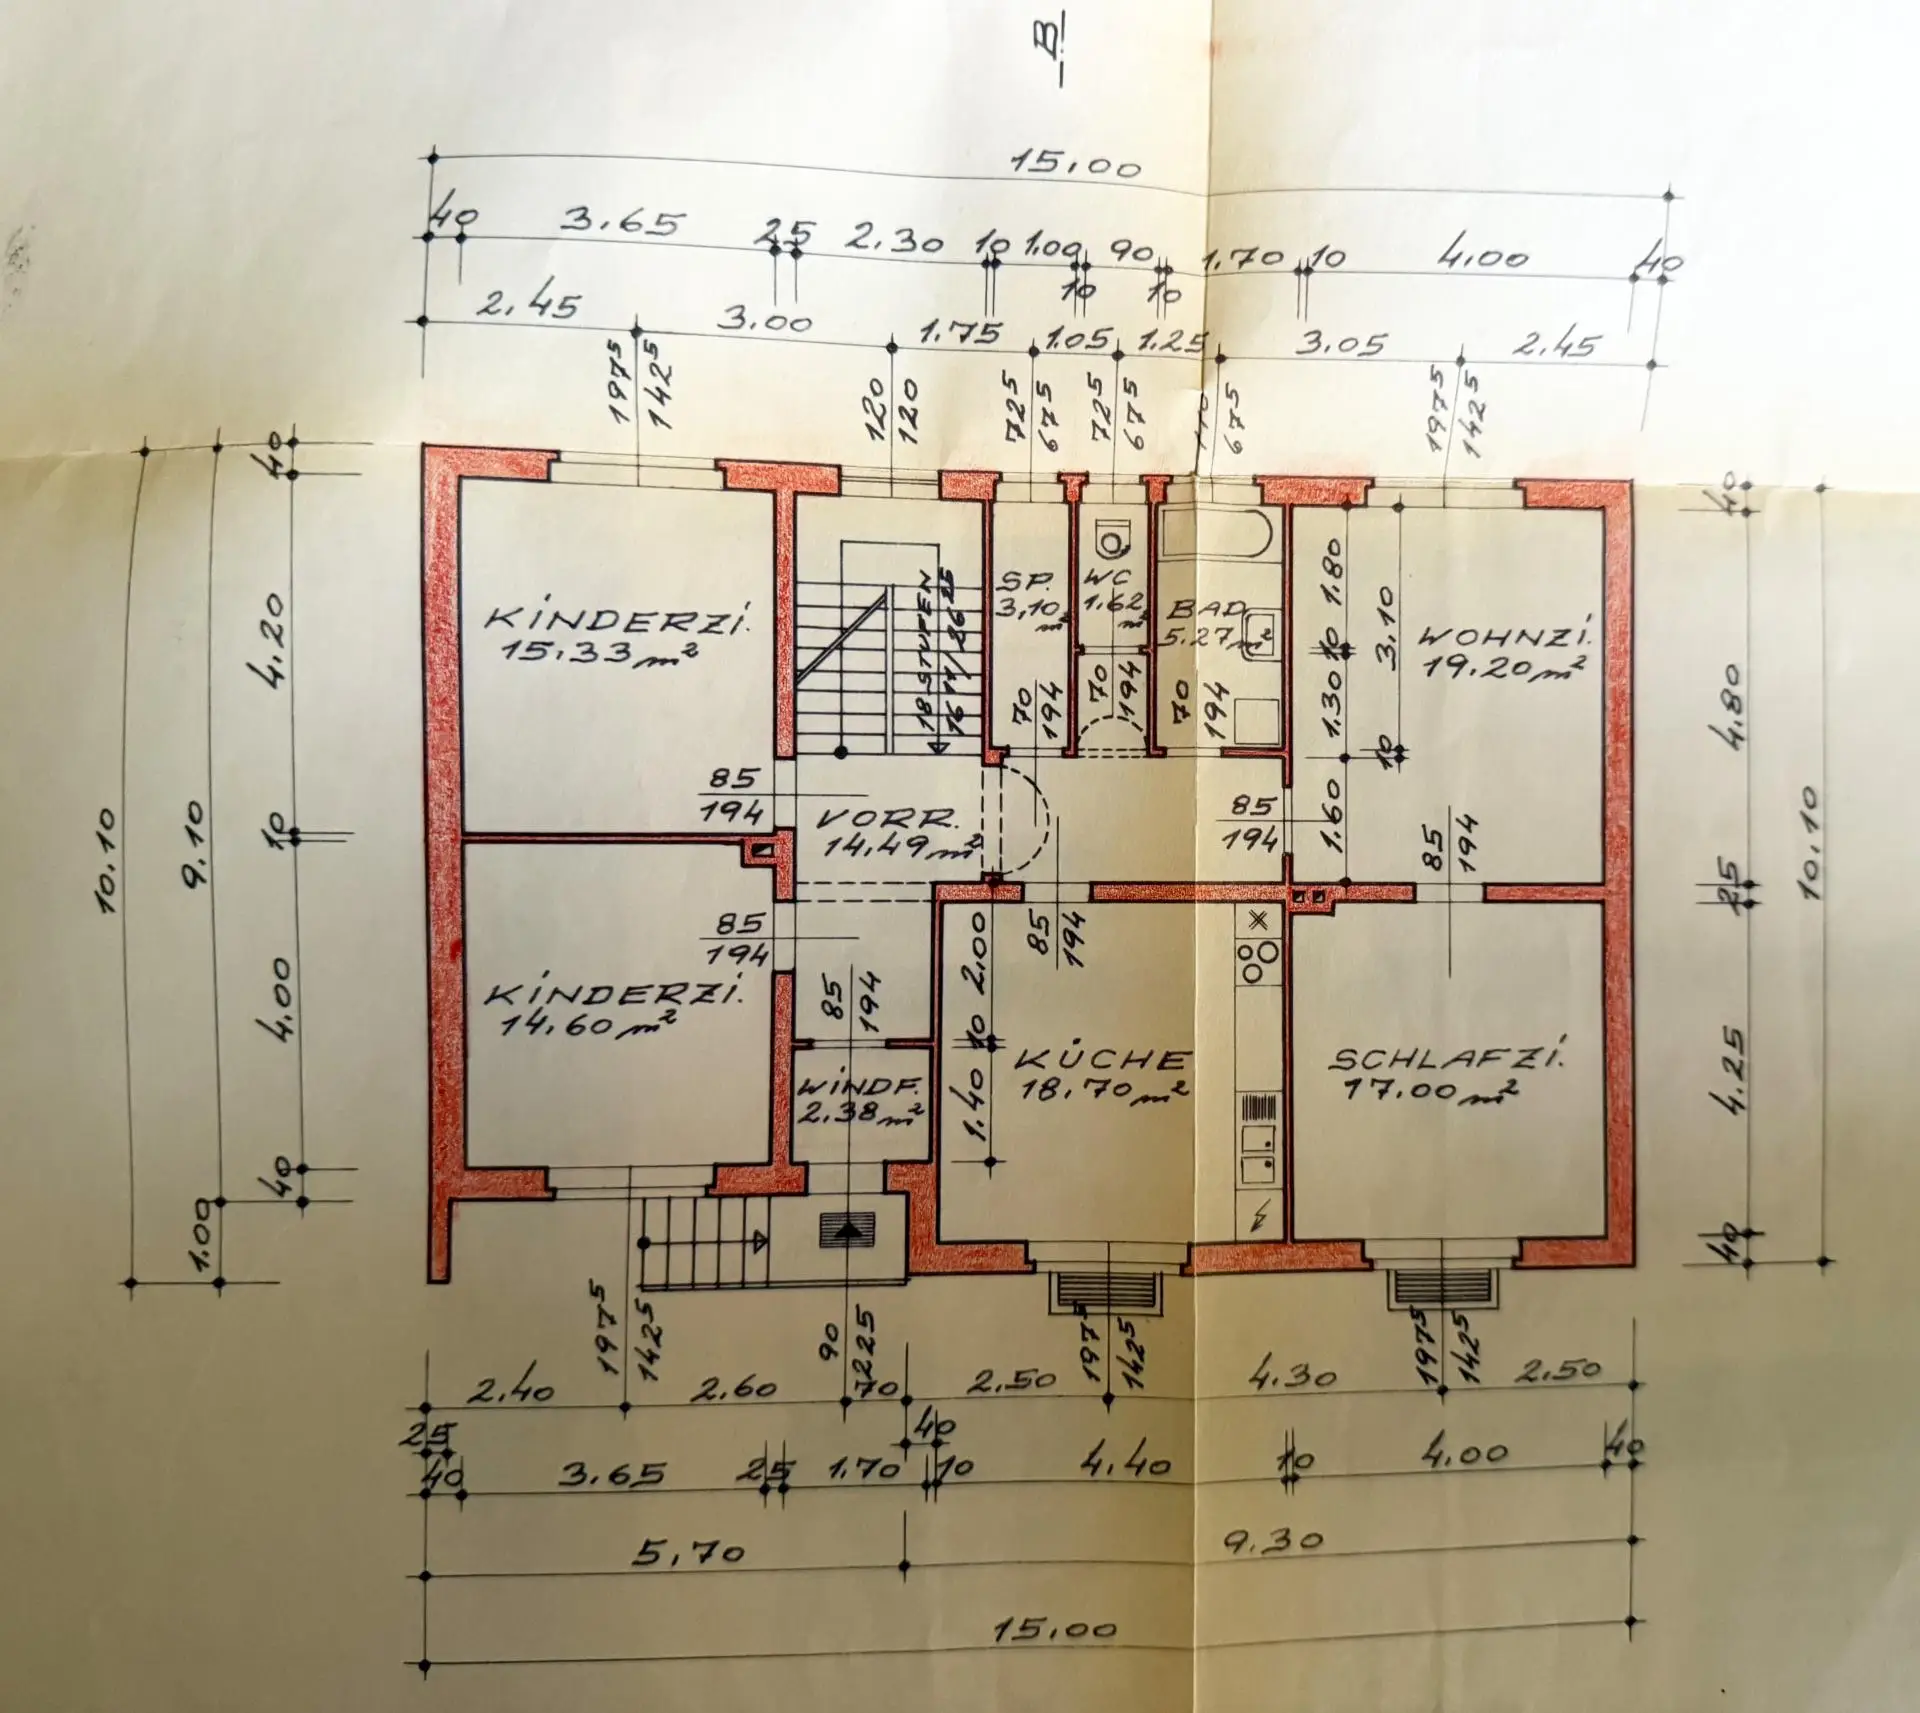 B
15.00
40 3.65 25 2.30 10 1.00 10 90 10 1.70 10 4.00 40
2.45 3.00 1.75 1.05 1.25 3.05 2.45
197⁵ 142⁵
120 120
72⁵ 67⁵
72⁵ 67⁵
67⁵
197⁵ 142⁵
10.10
9.10
1.00
40
4.20
10
4.00
40
KINDERZI.
15.33 m²
18 STUFEN
SP.
3.10 m²
WC
1.62 m²
BAD
5.27 m²
WOHNZI.
19.20 m²
1.80
10
1.30
1.60
3.10
10
70 194
70 194
70 194
85
194
VORR.
14.49 m²
85
194
85 194
KINDERZI.
14.60 m²
85
194
85 194
85 194
2.00
10
1.40
WINDF.
2.38 m²
KÜCHE
18.70 m²
SCHLAFZI.
17.00 m²
40
4.80
25
4.25
40
10.10
197⁵ 142⁵
90 225
197⁵ 142⁵
197⁵ 142⁵
2.40 2.60 70 2.50 4.30 2.50
25 40
40 3.65 25 1.70 10 4.40 10 4.00 40
5.70 9.30
15.00